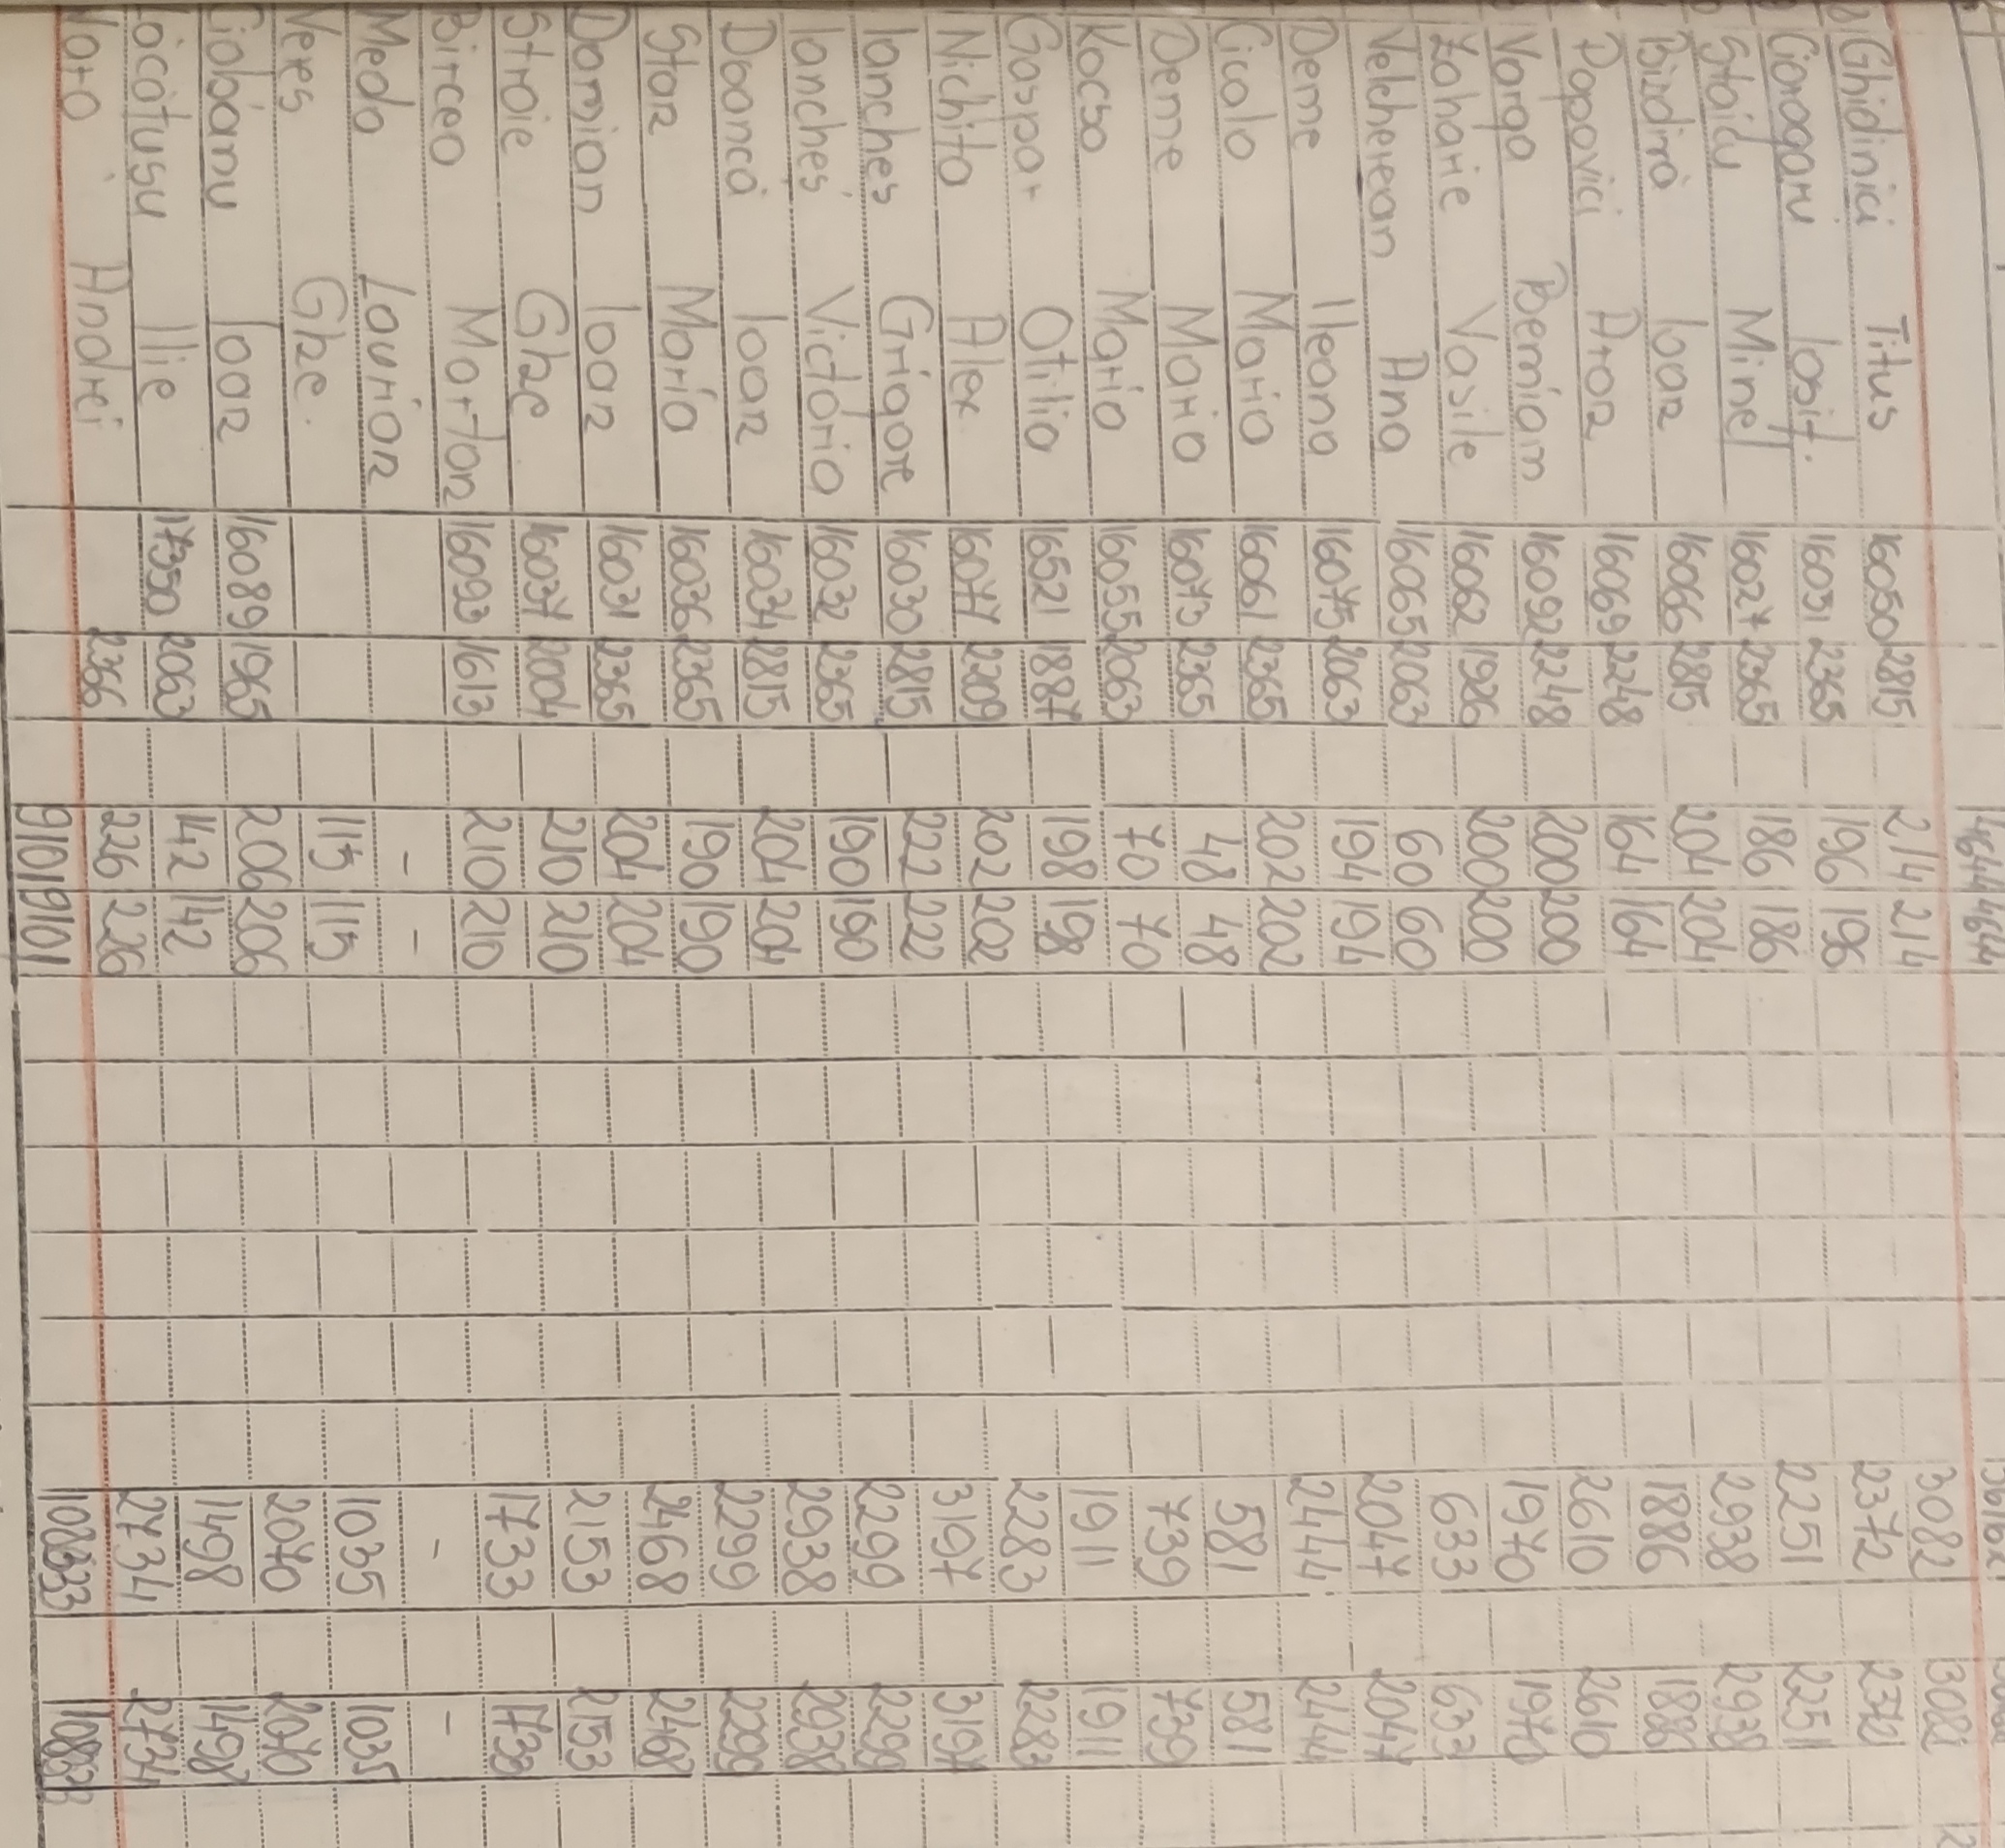 4644 4644
Ghidinici Titus 16050 2815 214 214 3082 3082
Iosif. 16051 2365 196 196 2372 2372
Minel 16027 2365 186 186 2251 2251
Ioan 16066 2815 204 204 2938 2938
Popovici Aron 16069 2248 164 164 1886 1886
Varga Beniam 16092 2248 200 200 2610 2610
Zaharie Vasile 16062 1926 200 200 1970 1970
Velcherean Ana 16065 2063 60 60 633 633
Deme Ileana 16075 2063 194 194 2047 2047
Ciulo Maria 16061 2365 202 202 2444 2444
Deme Maria 16073 2365 48 48 581 581
Kocso Maria 16055 2063 70 70 739 739
Gaspar Otilia 16521 1887 198 198 1911 1911
Nichita Alex 16077 2209 202 202 2283 2283
Ianches Grigore 16030 2815 222 222 3197 3197
Ianches Victoria 16032 2365 190 190 2299 2299
Ioan 16034 2815 204 204 2938 2938
Stan Maria 16036 2365 190 190 2299 2299
Damian Ioan 16031 2365 204 204 2468 2468
Stroie Ghe 16037 2004 210 210 2153 2153
Bircea Marton 16093 1613 210 210 1733 1733
Meda Laurian - - - -
Veres Ghe. 115 115 1035 1035
Ciobanu Ioan 16089 1965 206 206 2070 2070
Locatusu Ilie 17350 2063 142 142 1498 1498
Vara Andrei 2366 226 226 2734 2734
9101 9101